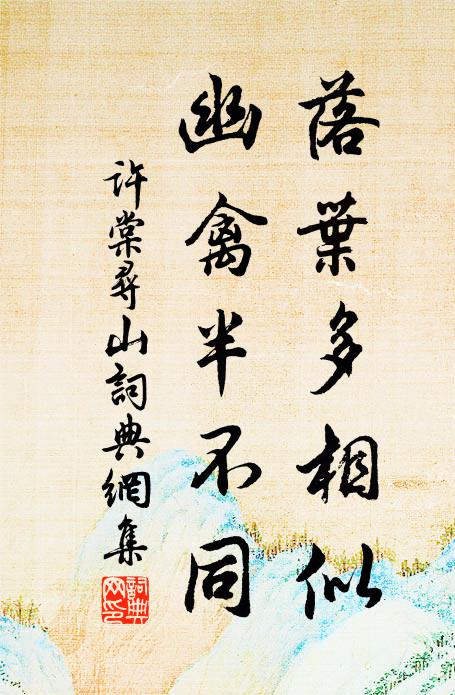 落葉多相似
幽禽半不同
許棠尋山詞典網集
詞典網印